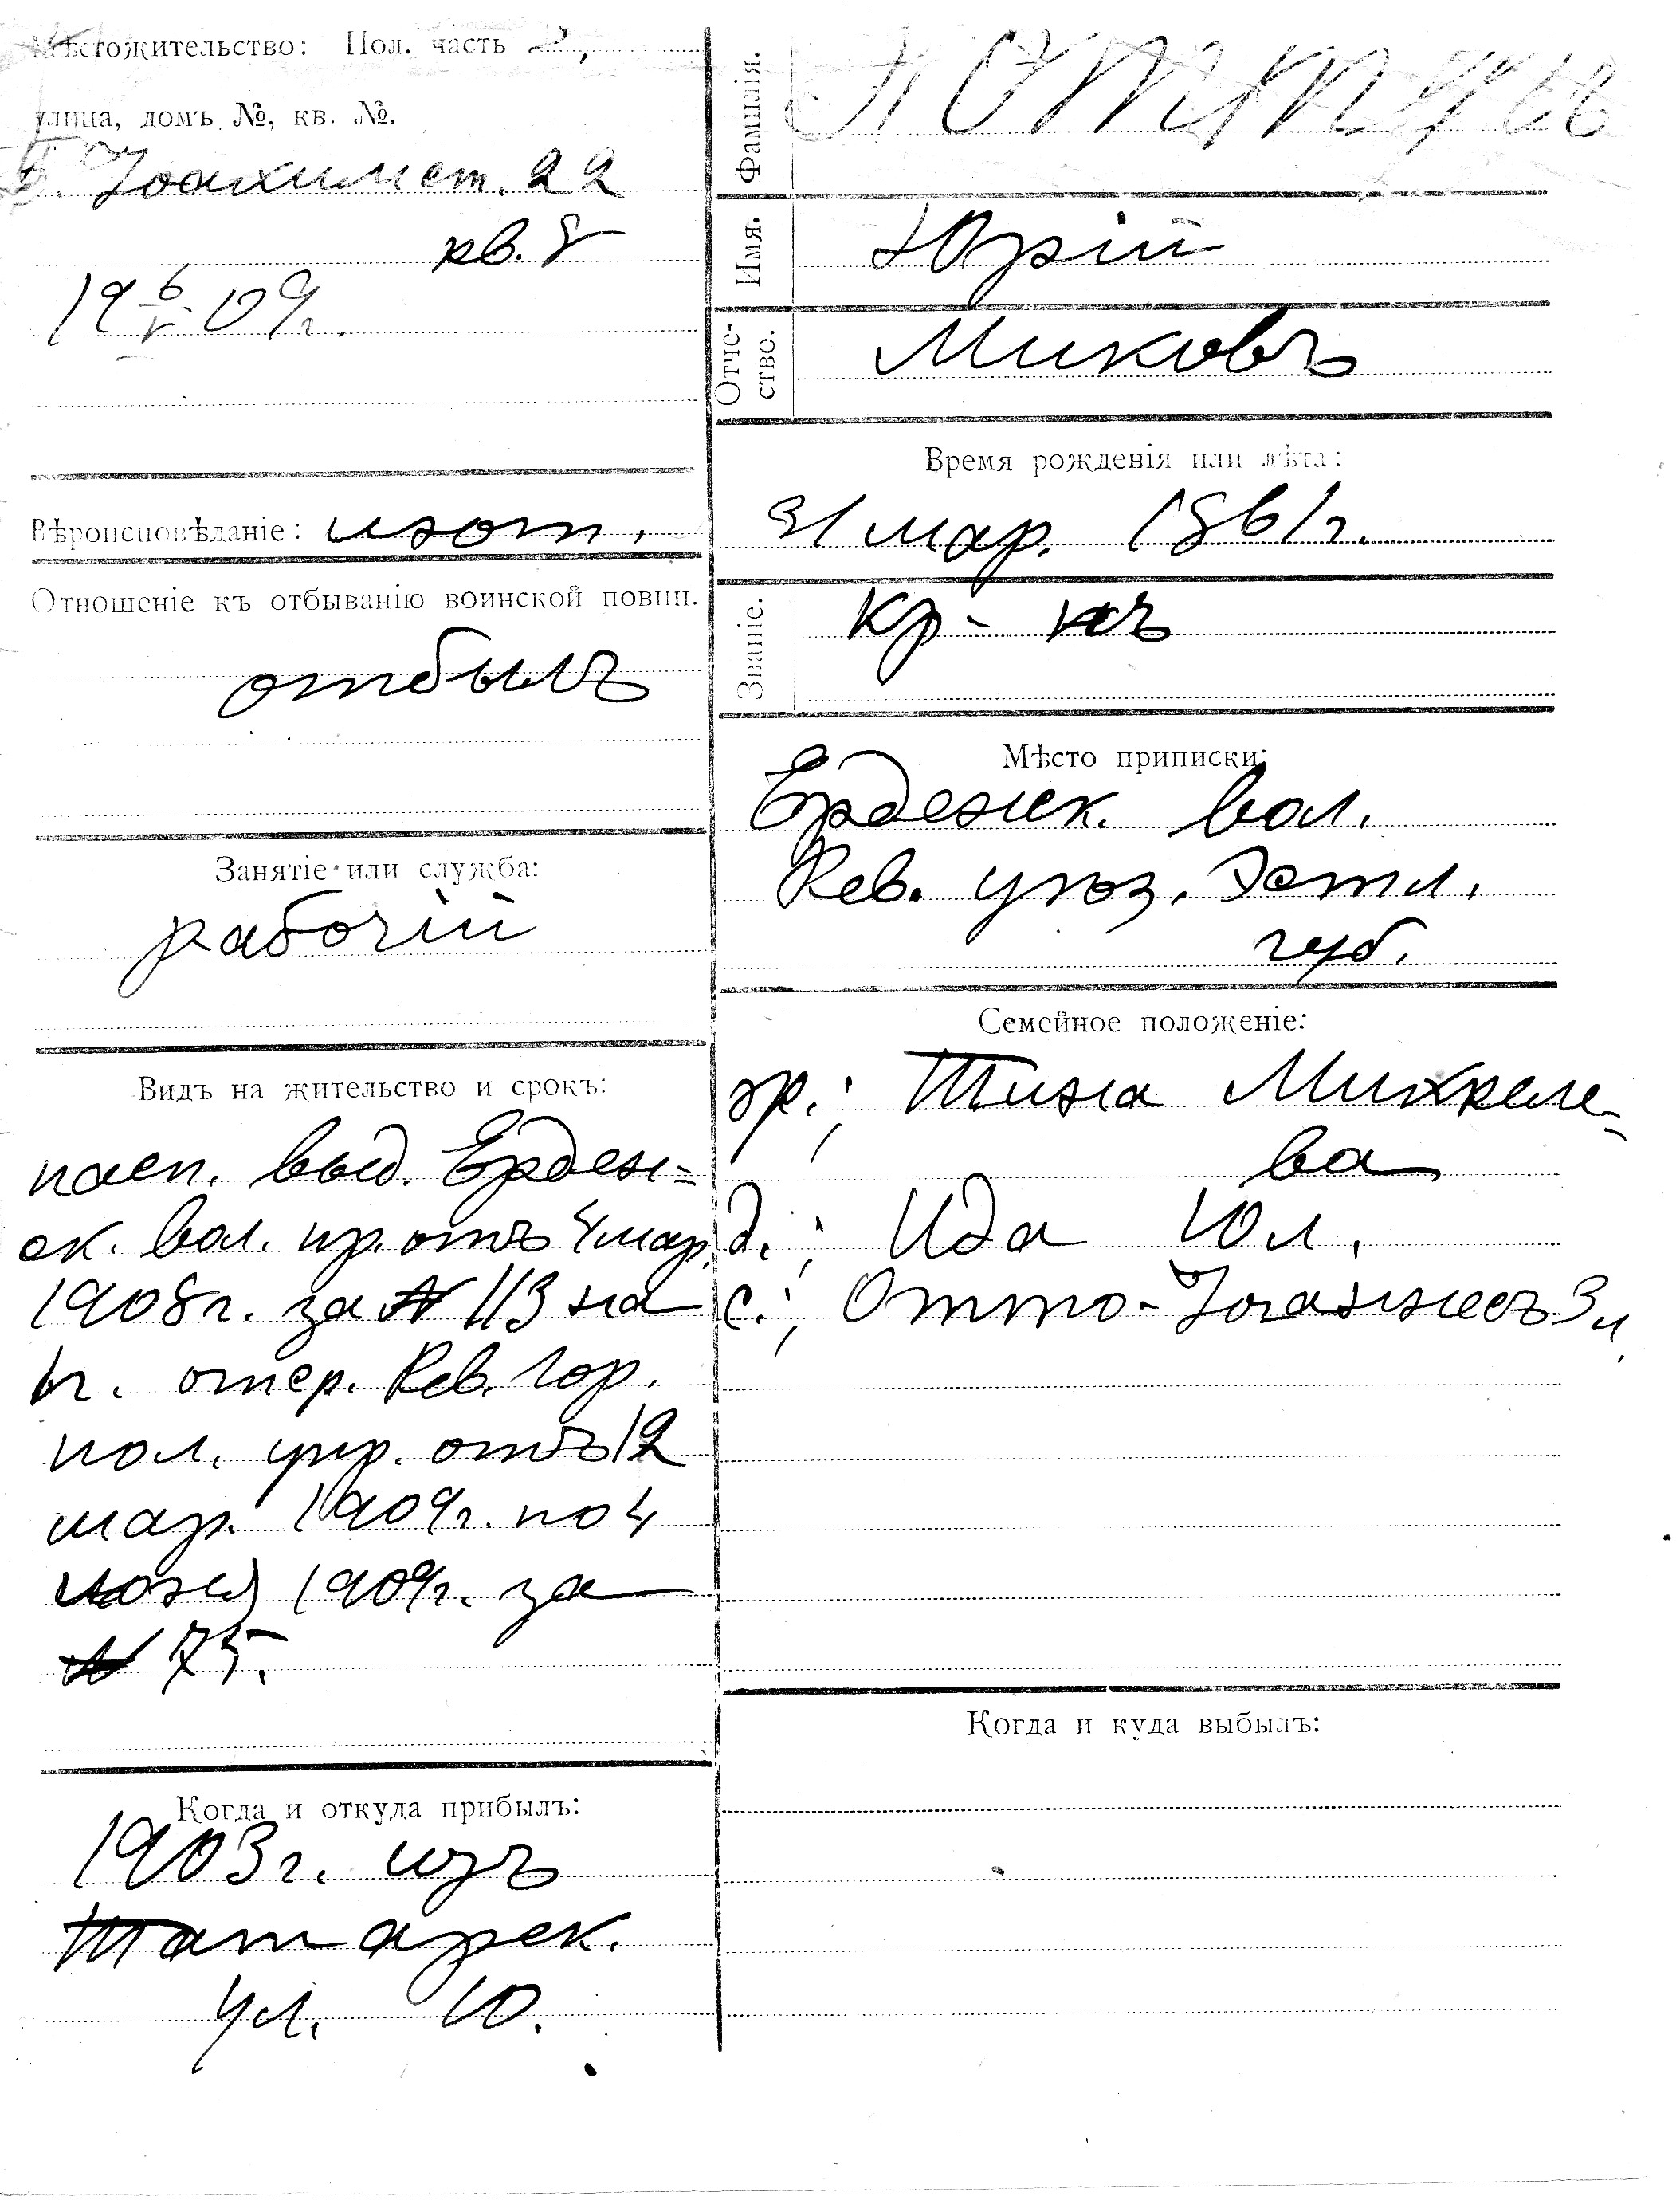 Мѣстожительство: Пол. часть 2,
улица, домъ №, кв. №.
Б. Іоахимст. 22
кв. 8
19 6/V 09г.
Вѣроисповѣданіе: изот.
Отношеніе къ отбыванію воинской повин.
отбылъ
Занятіе или служба:
рабочій
Видъ на жительство и срокъ:
пасп. выд. Ерден-
ск. вол. пр. отъ 4 мар.
1908г. за № 113 на
1г. отср. Рев. гор.
пол. упр. отъ 12
мар. 1909г. по 4
іюня 1909г. за
№ 75.
Когда и откуда прибылъ:
1903г. изъ
Татарск.
ул. 10.
Фамилія.
Имя. Юрій
Отче-
ство. Миковъ
Время рожденія или лѣта:
31 мар. 1861г.
Званіе. кр-нъ
Мѣсто приписки:
Ерденск. вол.
Рев. уѣз. Эстл.
губ.
Семейное положеніе:
Тина Миккеле-
ва
д.; Ида 10 л.
с.; Отто-Іоганнесъ 3 л.
Когда и куда выбылъ: